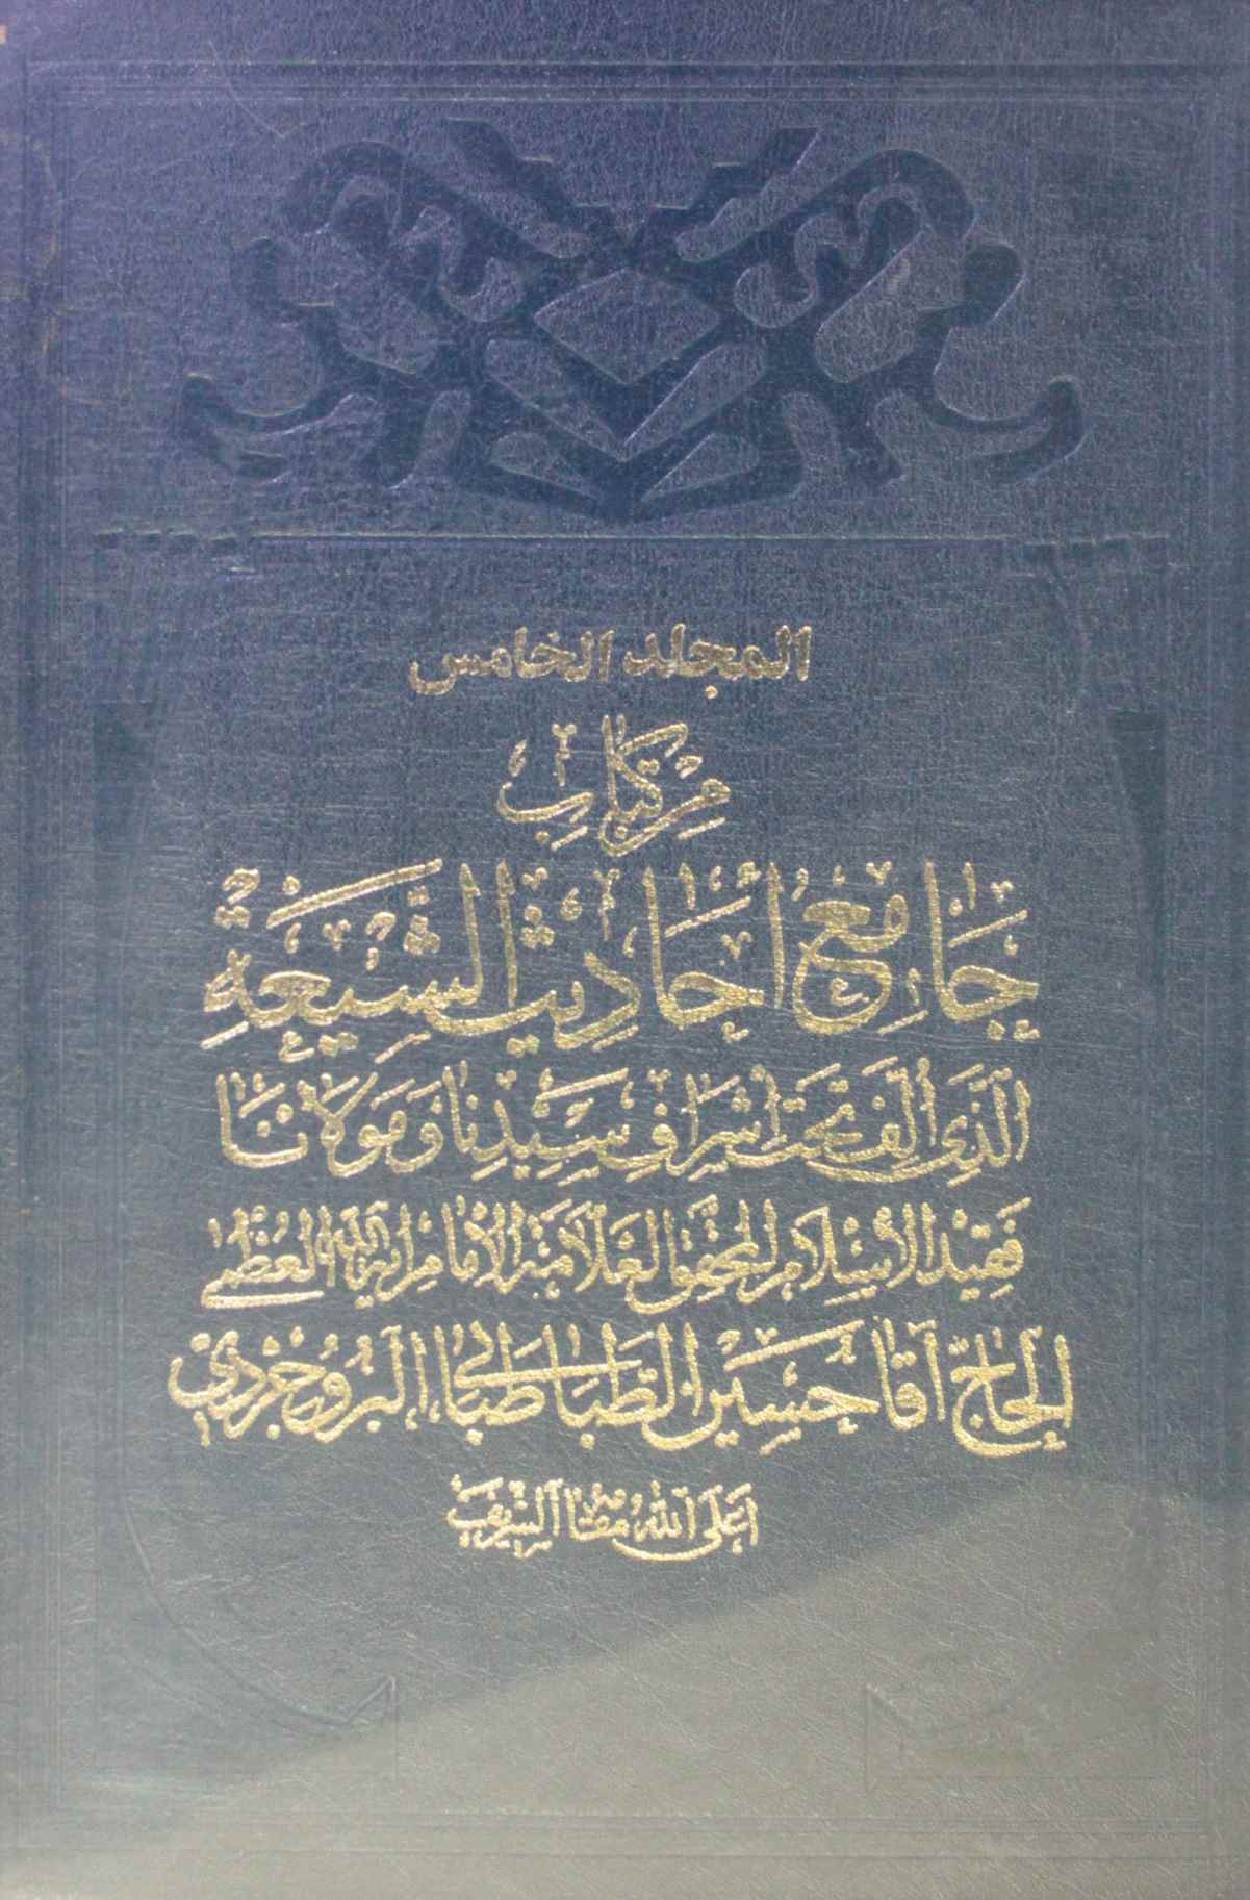 المجلد الخامس
من كتاب
جامع أحاديث الشيعة
الذي ألف تحت إشراف سيدنا ومولانا
فقيد الإسلام المحقق العلامة الإمام آية الله العظمى
الحاج آقا حسين الطباطبائي البروجردي
أعلى الله مقامه الشريف